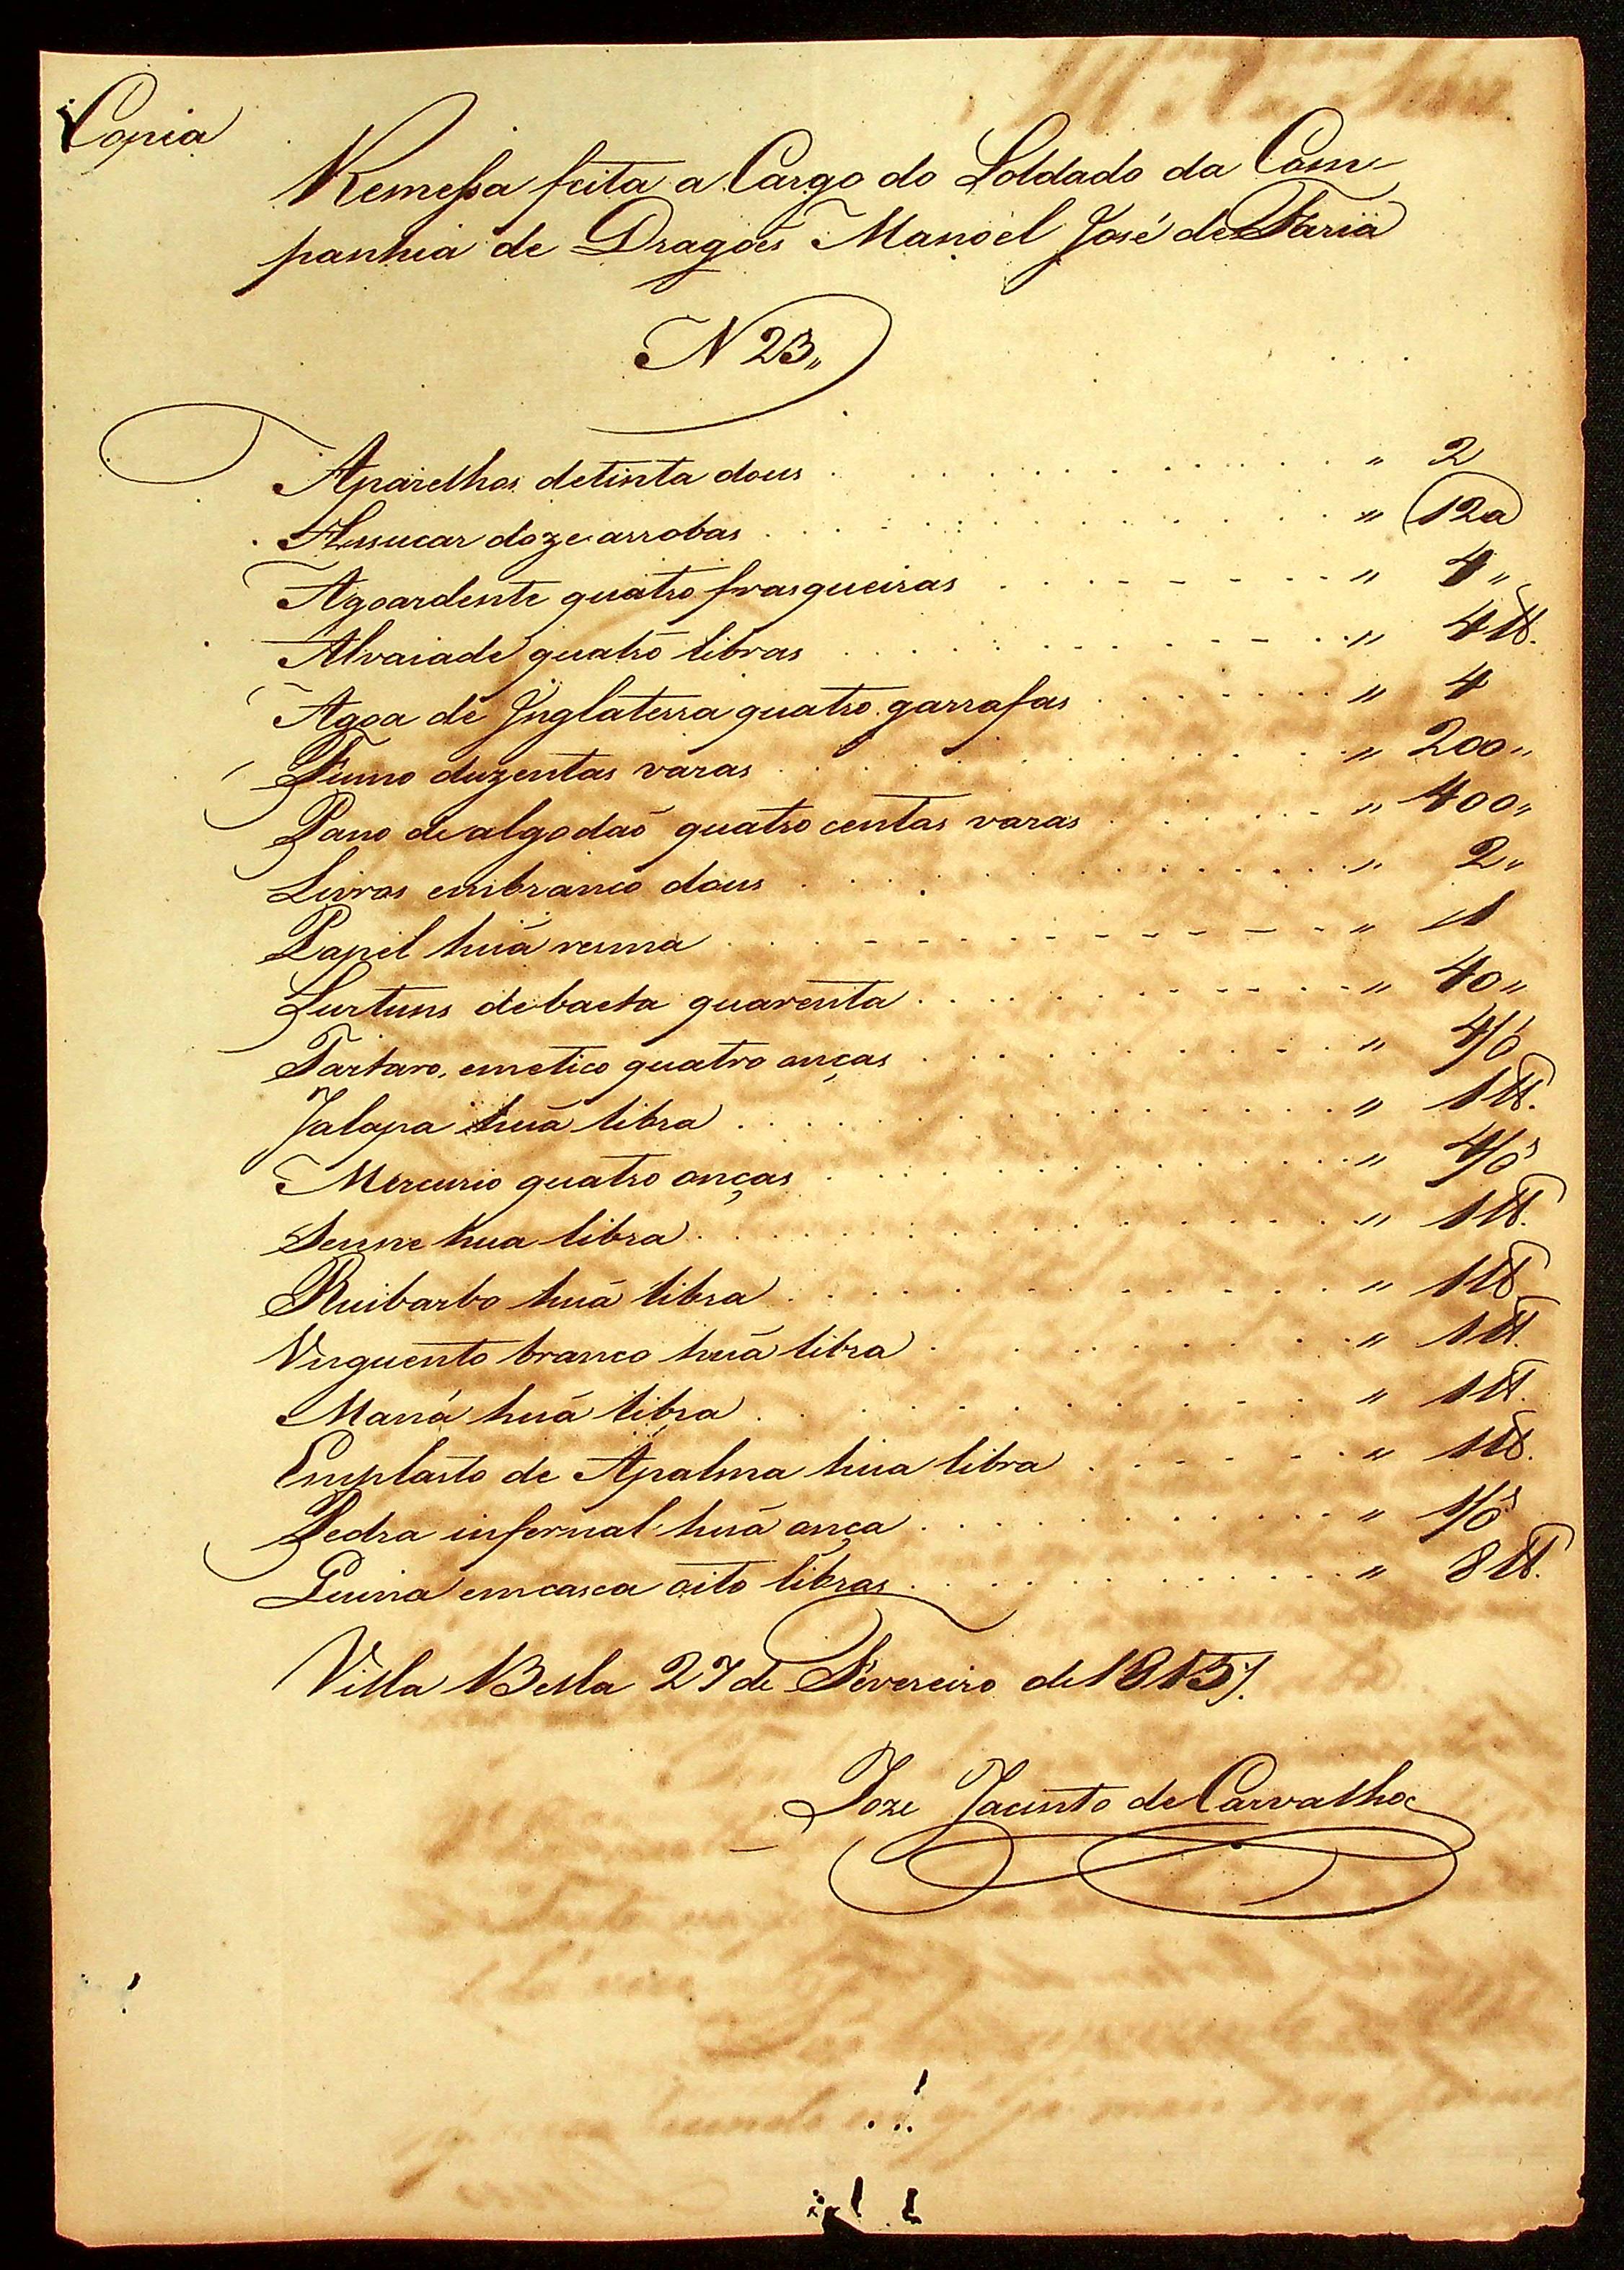 Copia
Remessa feita a Cargo do Soldado da Com-
panhia de Dragoẽs Manoel José de Faria
N 23,,
Aparelhos detinta dous . . . . . . . . . . . . . . . . " 2
Assucar doze arrobas . . . . . . . . . . . . . . . . " 12a
Agoardente quatro frasqueiras . . . . - - - - - - " 4 "
Alvaiade quatro libras . . . . . . . . . - - - . . " 4 lb.
Agoa de Inglaterra quatro garrafas . . . . . . . . " 4
Fumo duzentas varas . . . . . . . . . . . . . . . " 200 "
Pano de algodaõ quatro centas varas . . . . . . - - " 400 "
Livros embranco dous . . . . . . . . . . . . . . . " 2 "
Papel huã resma . . . - - - - - - - - - - - - - " 1
Surtuns debaeta quarenta . . . . . . . . - - - - - " 40 "
Tartaro, emetico quatro onças . . . . . . . . . . . " 4/õ
Jalapa huã libra . . . . . . . . . . . . . . . . . " 1 lb.
Mercurio quatro onças . . . . . . . . . . . . . . . " 4/õ
Senne hua libra . . . . . . . . . . . . . . . . . " 1 lb.
Ruibarbo huã libra . . . . . . . . . . . . . . . . " 1 lb
Vnguento branco huã libra . . . . . . . . . . . . . " 1 lb.
Maná huã libra . . . . . . . . . . . . . . . . . . " 1 lb.
Emplasto de Apalma hua libra . . . . - - . - . . " 1 lb.
Pedra infernal huã onça . . . . . . . . . . . . . . " 1/õ
Quina emcasca oito libras . . . . . . . . . . . . . " 8 lb.
Villa Bella 27 de Fevereiro de 1815 /.
Joze Jacinto de Carvalho